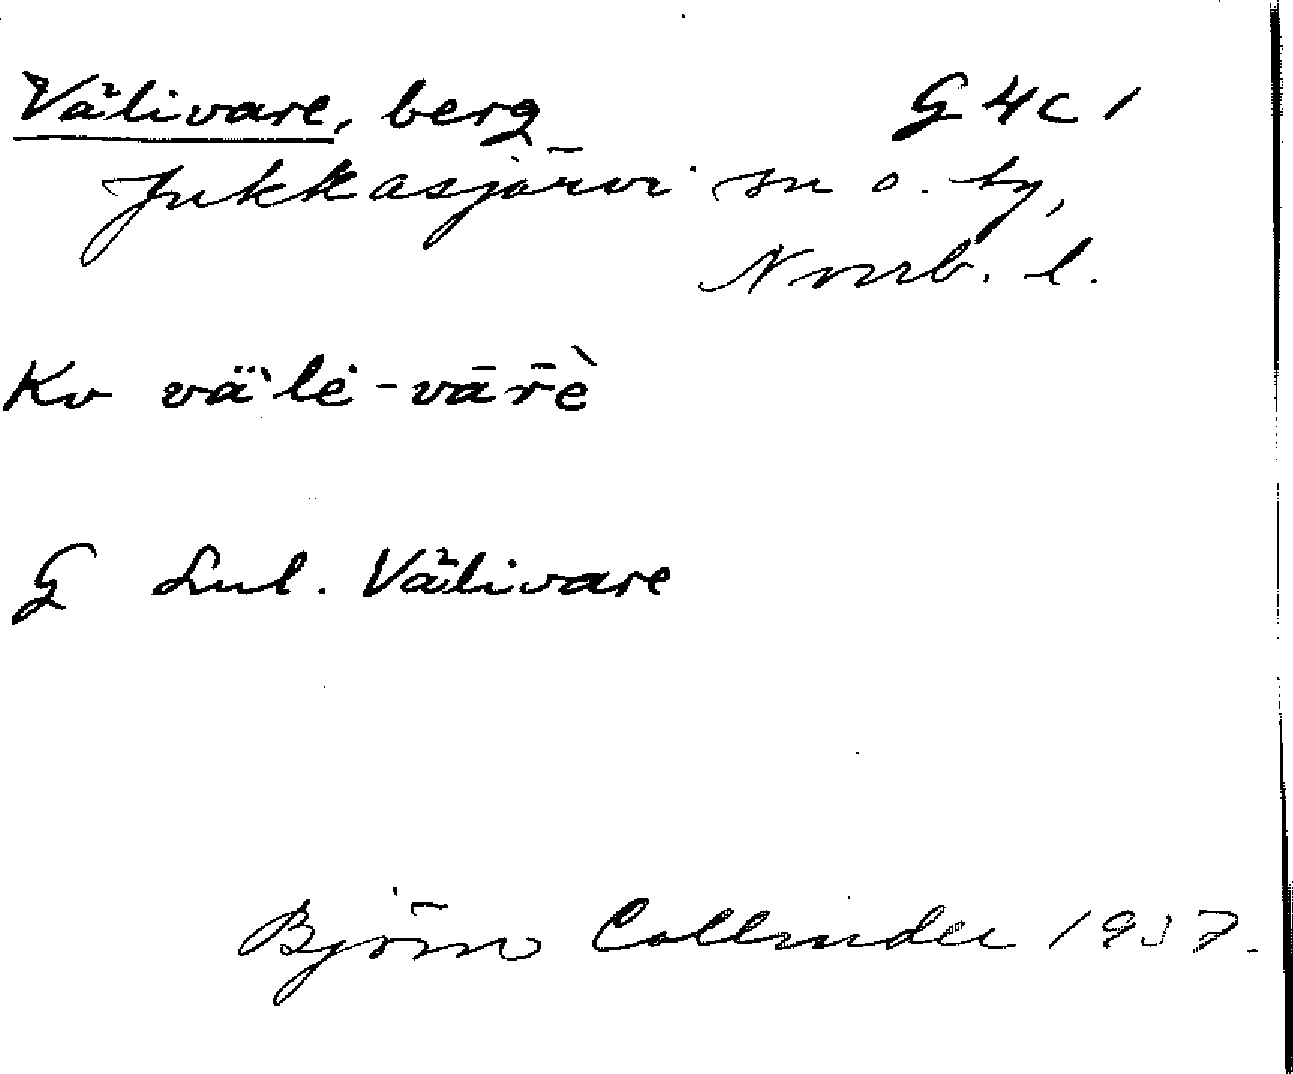 Välivare, berg G 4 c 1
Jukkasjärvi sn o. by,
Norrb. l.
Kv väˋlė-vār̄ė̀
G Lul. Välivare
Björn Collinder 1937.